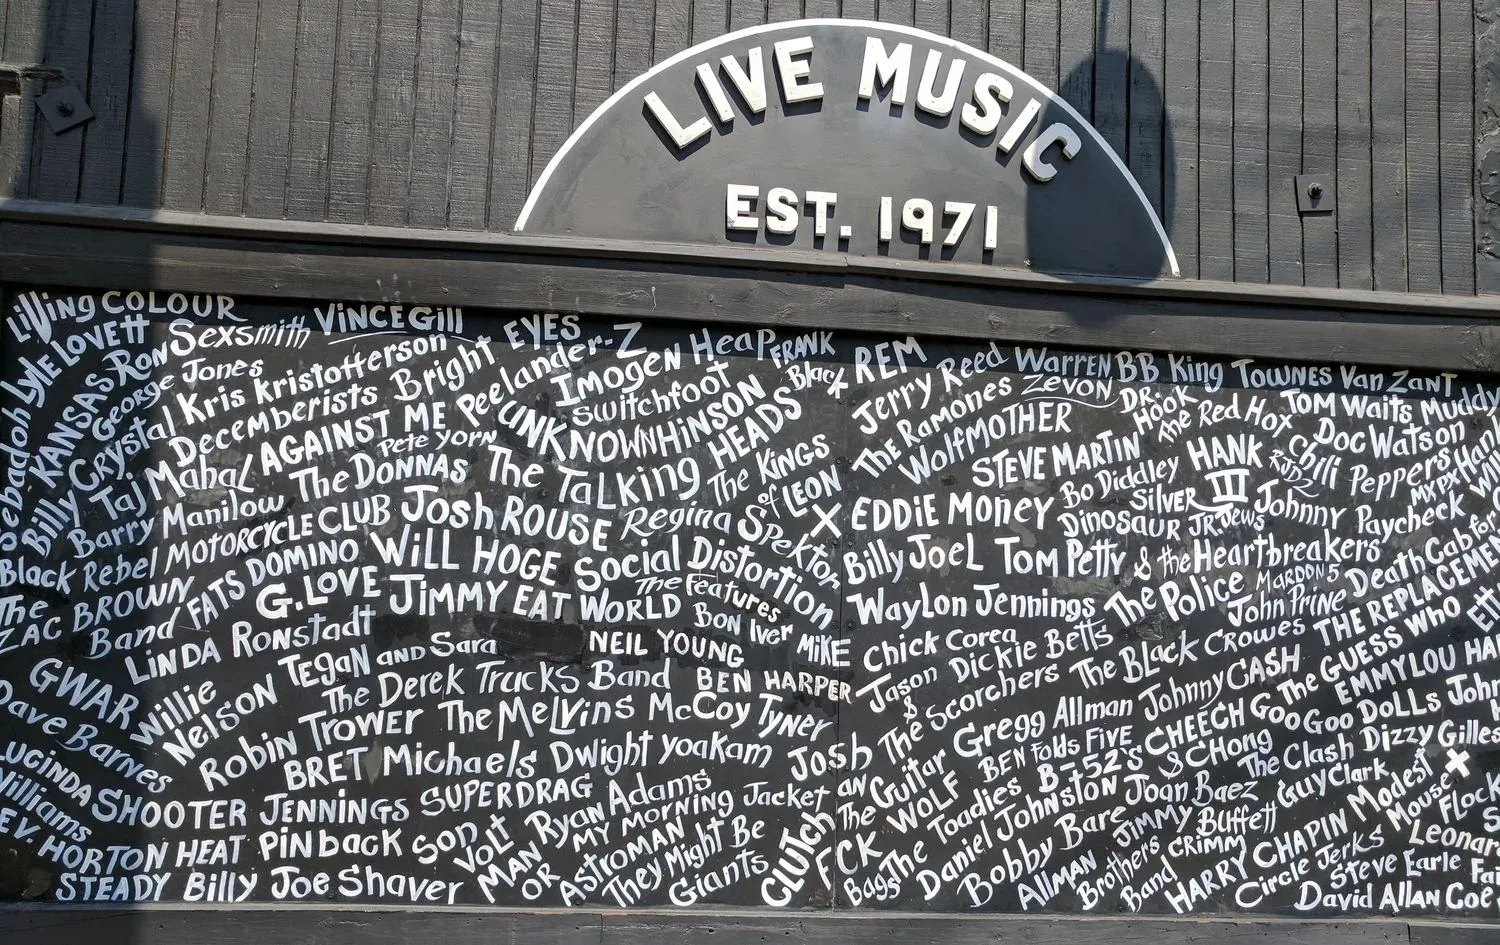 LIVE MUSIC
EST. 1971
Living COLOUR
LyLE LOVETT
RON Sexsmith
VINCE Gill
EYES
Peelander-Z
Imogen Heap
FRANK Black
REM
Jerry Reed
Warren Zevon
BB King
TOWNES Van ZanT
Sebadoh
KANSAS
George Jones
Kris Kristofferson
Bright EYES
Switchfoot
The Ramones
DR. Hook
The Red Hot Chili Peppers
TOM Waits
Muddy
Billy
Crystal
Decemberists
AGAINST ME
UNKNOWN HINSON
WolfMOTHER
Doc Watson
Taj MahaL
Pete Yorn
The TaLking HEADS
STEVE MARTIN
HANK III
RJD2
MXPX
Hank
Barry Manilow
The DONNAS
The Kings of LEON
X
EDDIE MONEY
Bo Diddley
Silver Jews
Johnny Paycheck
Black Rebel MOTORCYCLE CLUB
Josh ROUSE
Regina Spektor
Dinosaur JR.
The ZAC BROWN Band
FATS DOMINO
WiLL HOGE
Social Distortion
Billy JoeL
Tom Petty & the Heartbreakers
Death Cab for
G. LOVE
JiMMY EAT WORLD
The Features
WayLon Jennings
The Police
MAROON 5
John Prine
THE REPLACEMEN
LINDA RONstadt
Bon Iver
MiKE
Chick Corea
Dickie Betts
The BLack Crowes
The GUESS Who
GWAR
Willie NELSON
TEGAN AND Sara
NEIL YOUNG
BEN HARPER
Jason & The Scorchers
JohnnyCASH
EMMYLOU HA
Dave Barnes
The Derek Trucks Band
Gregg Allman
CHEECH & CHong
GooGoo DOLLS
John
Robin Trower
The Melvins
McCoy Tyner
Guitar WOLF
BEN Folds FIVE
The Clash
Dizzy Gilles
LUCINDA Williams
BRET Michaels
Dwight yoakam
Josh
The Toadies
B-52's
Joan Baez
Guy Clark
Modest Mouse
SHOOTER JENNINGS
SUPERDRAG
Ryan Adams
Daniel Johnston
JIMMY BUFFETT
FLock
REV. HORTON HEAT
PiNback
Son VoLt
MY MORNING Jacket
The FCK
Bobby Bare
HARRY CHAPIN
Leonar
STEADY
Billy Joe Shaver
MAN OR ASTROMAN
They Might Be Giants
CLUTCH
Bags
ALLMAN Brothers Band
Circle Jerks
Steve Earle
David ALLAN Coe